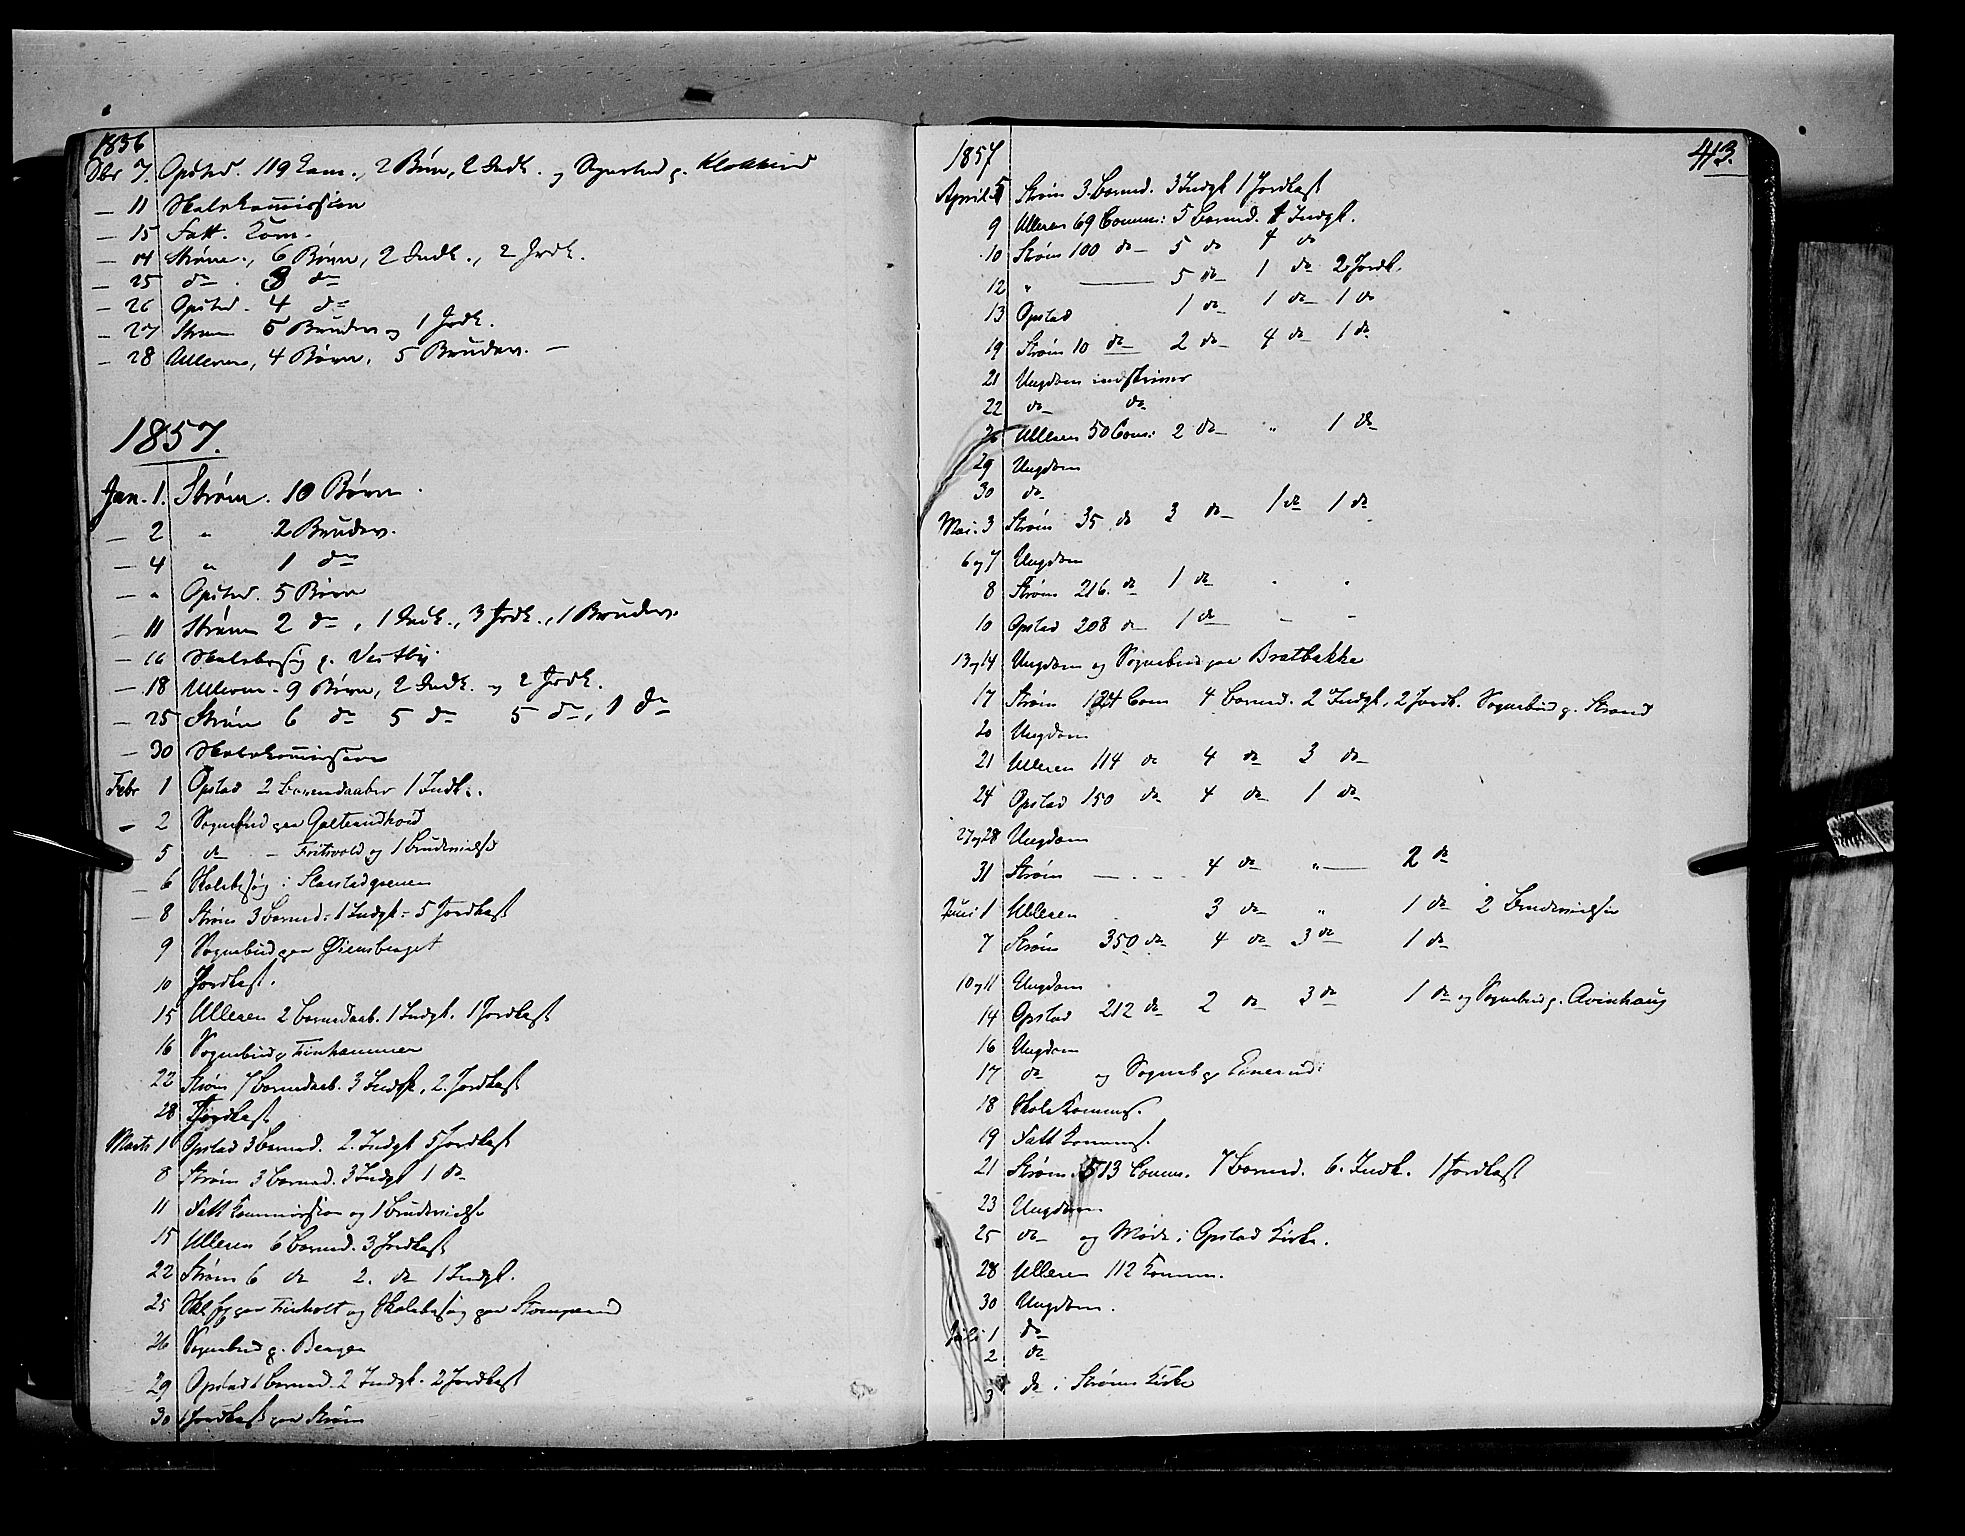 1856
Dbr 7. Opstad. 119 Com., 2 Børn, 2 Indl. og Sognebud p.
— 11 Skolekommission
— 15 Fatt. Kom.
— 24 Strøm., 6 Børn, 2 Indl., 2 Jrdk.
— 25 do . 3 do
— 26 Opstad. 4 do
— 27 Strøm 5 Brudev. og 1 Jrdk.
— 28 Ulleren, 4 Børn, 5 Brudev. —
1857.
Jan. 1. Strøm. 10 Børn.
— 2 " 2 Brudev.
— 4 " 1 do
— " Opstad. 5 Børn
— 11 Strøm 2 do, 1 Indl., 3 Jrdk., 1 Brudev.
— 16 Skolebesøg p. Vestby
— 18 Ulleren. 9 Børn, 2 Indl. og 2 Jrdk.
— 25 Strøm 6 do 5 do 5 do, 1 do
— 30 Skolekommission
Febr 1 Opstad 2 Barnedaaber 1 Indl.
— 2 Sognebud paa
— 5 do — Fritsvold og 1 Brudevielse
— 6 Skolebesøg i
— 8 Strøm 3 Barned: 1 Indgl: 5 Jordkast
9 Sognebud paa Øiensberget
10 Jordkast.
15 Ulleren 2 Barnedaab. 1 Indgl. 1 Jordkast
16 Sognebud p. Finhammer
22 Strøm 7 Barnedaab. 3 Indgl, 2. Jordkast
28 Jordkast
Marts 1 Opstad 3 Barned. 2. Indgl 5 Jordkast
8 Strøm 3 Barned. 3 Indgl 1 do
11 Fatt Kommission og 1 Brudevielse
15 Ulleren 6 Barned. 3 Jordkast
22 Strøm 6 do 2. do 1 Indgl.
25 paa Finholt og Skolebesøg paa
26 Sognebud p. Berger
29 Opstad 1 Barned. 2 Indgl. 2 Jordkast
30 1 Jordkast paa Strøm
1857
413.
April 5 Strøm 3. Barned. 3 Indgl 1 Jordkast
9 Ulleren 69 Comm: 5 Barned. 1 Indgl.
10 Strøm 100 do 5 do 4 do
12 " — 5 do 1 do 2 Jordk.
13 Opstad 1 do 1 do 1 do
19 Strøm 10 do 2 do 4 do 1 do
21 Ungdom indskriver
22 do do
26 Ulleren 50 Com: 2 do " 1 do
29 Ungdom
30 do
Mai. 3 Strøm 35 do 3 do 1 do 1 do
6 og 7 Ungdom
8 Strøm 216. do 1 do " "
10 Opstad 208 do 1 do — —
13 og 14 Ungdom og Sognebud paa Bratbakke
17 Strøm 124 Com 4 Barned. 2 Indgl, 2 Jordk. Sognebud p. Strand
20 Ungdom
21 Ulleren 114 do 4 do 3 do
24 Opstad 150 do 4 do 1 do
27 og 28 Ungdom
31 Strøm — . — . 4 do " — 2 do
Juni 1 Ulleren 3 do " 1 do 2 Brudevielser
7 Strøm 350 do 4 do 3 do 1 do
10 og 11 Ungdom
14 Opstad 212 do 2 do 3 do 1 do og Sognebud p.
16 Ungdom
17 do og Sogneb p
18 Skole Komms.
19 Fatt Komms.
21 Strøm 513 Comm. 7 Barned. 6. Indl. 1 Jordkast
23 Ungdom
25 do og Møde i Opstad Kirke.
28 Ulleren 112 Komm.
30 Ungdom.
Juli 1 do
2 do
3 do i Strøms Kirke